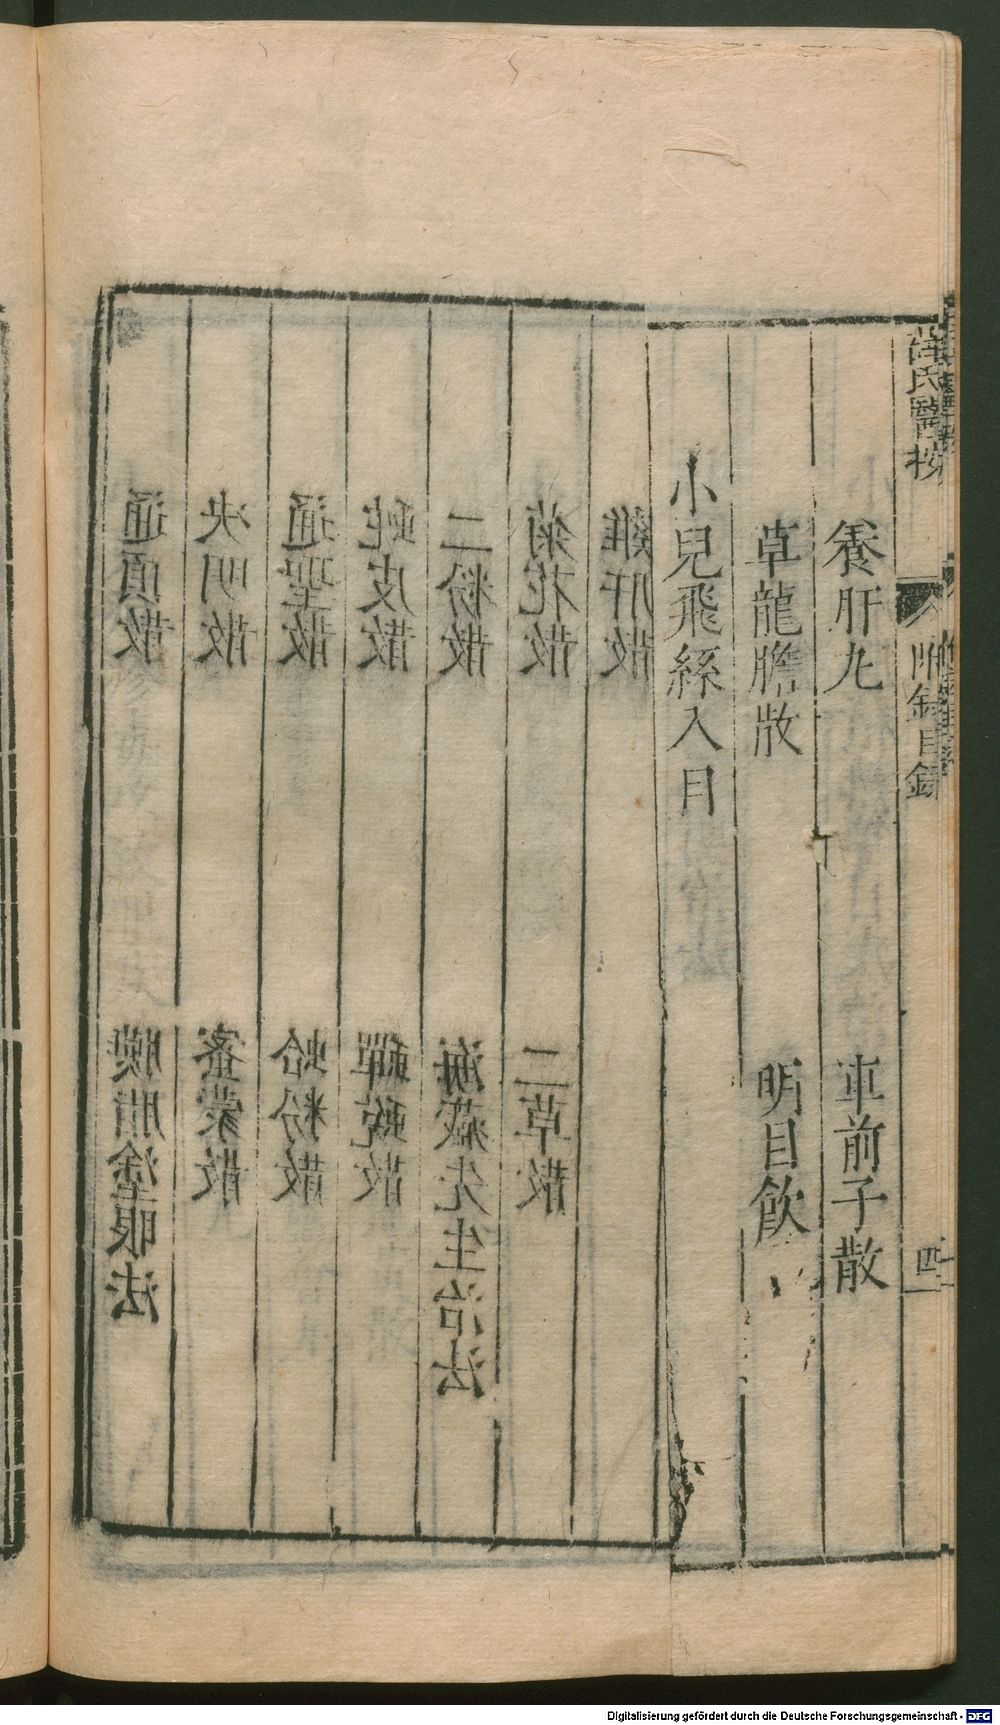 薛氏醫按
附錄目錄
四
養肝丸 車前子散
草龍膽散 明目飲
小兒飛絲入目
雞肝散
菊花散 二草散
二粉散 海藏先生治法
蛇皮散 蟬蛻散
通聖散 蛤粉散
决明散 蜜蒙散
通頂散 脂塗眼法
Digitalisierung gefördert durch die Deutsche Forschungsgemeinschaft - DFG